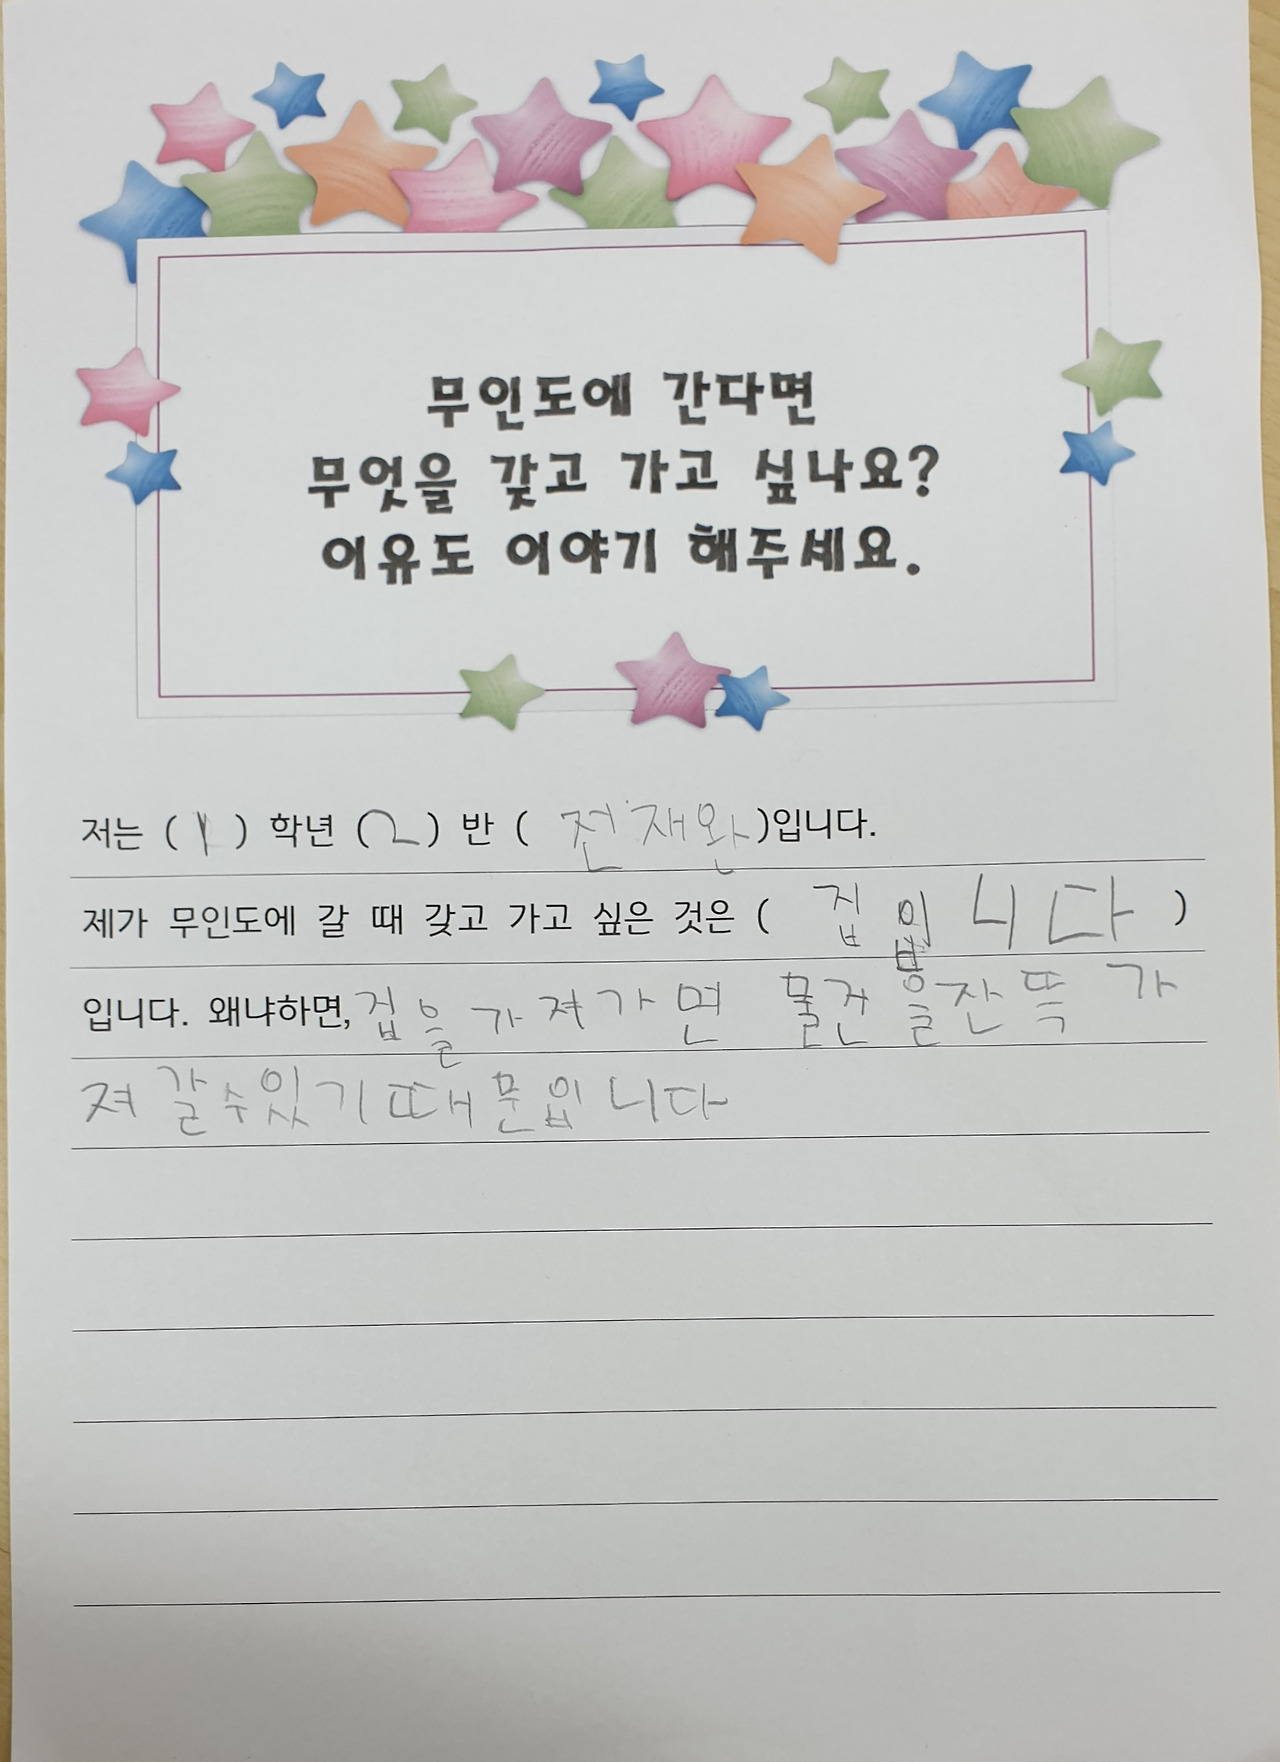 무인도에 간다면
무엇을 갖고 가고 싶나요?
이유도 이야기 해주세요.
저는 (1) 학년 (2) 반 ( 전재완)입니다.
제가 무인도에 갈 때 갖고 가고 싶은 것은 ( 집 입니다 )
입니다. 왜냐하면, 집을 가져가면 물건을잔뜩 가
져갈수있기때문입니다